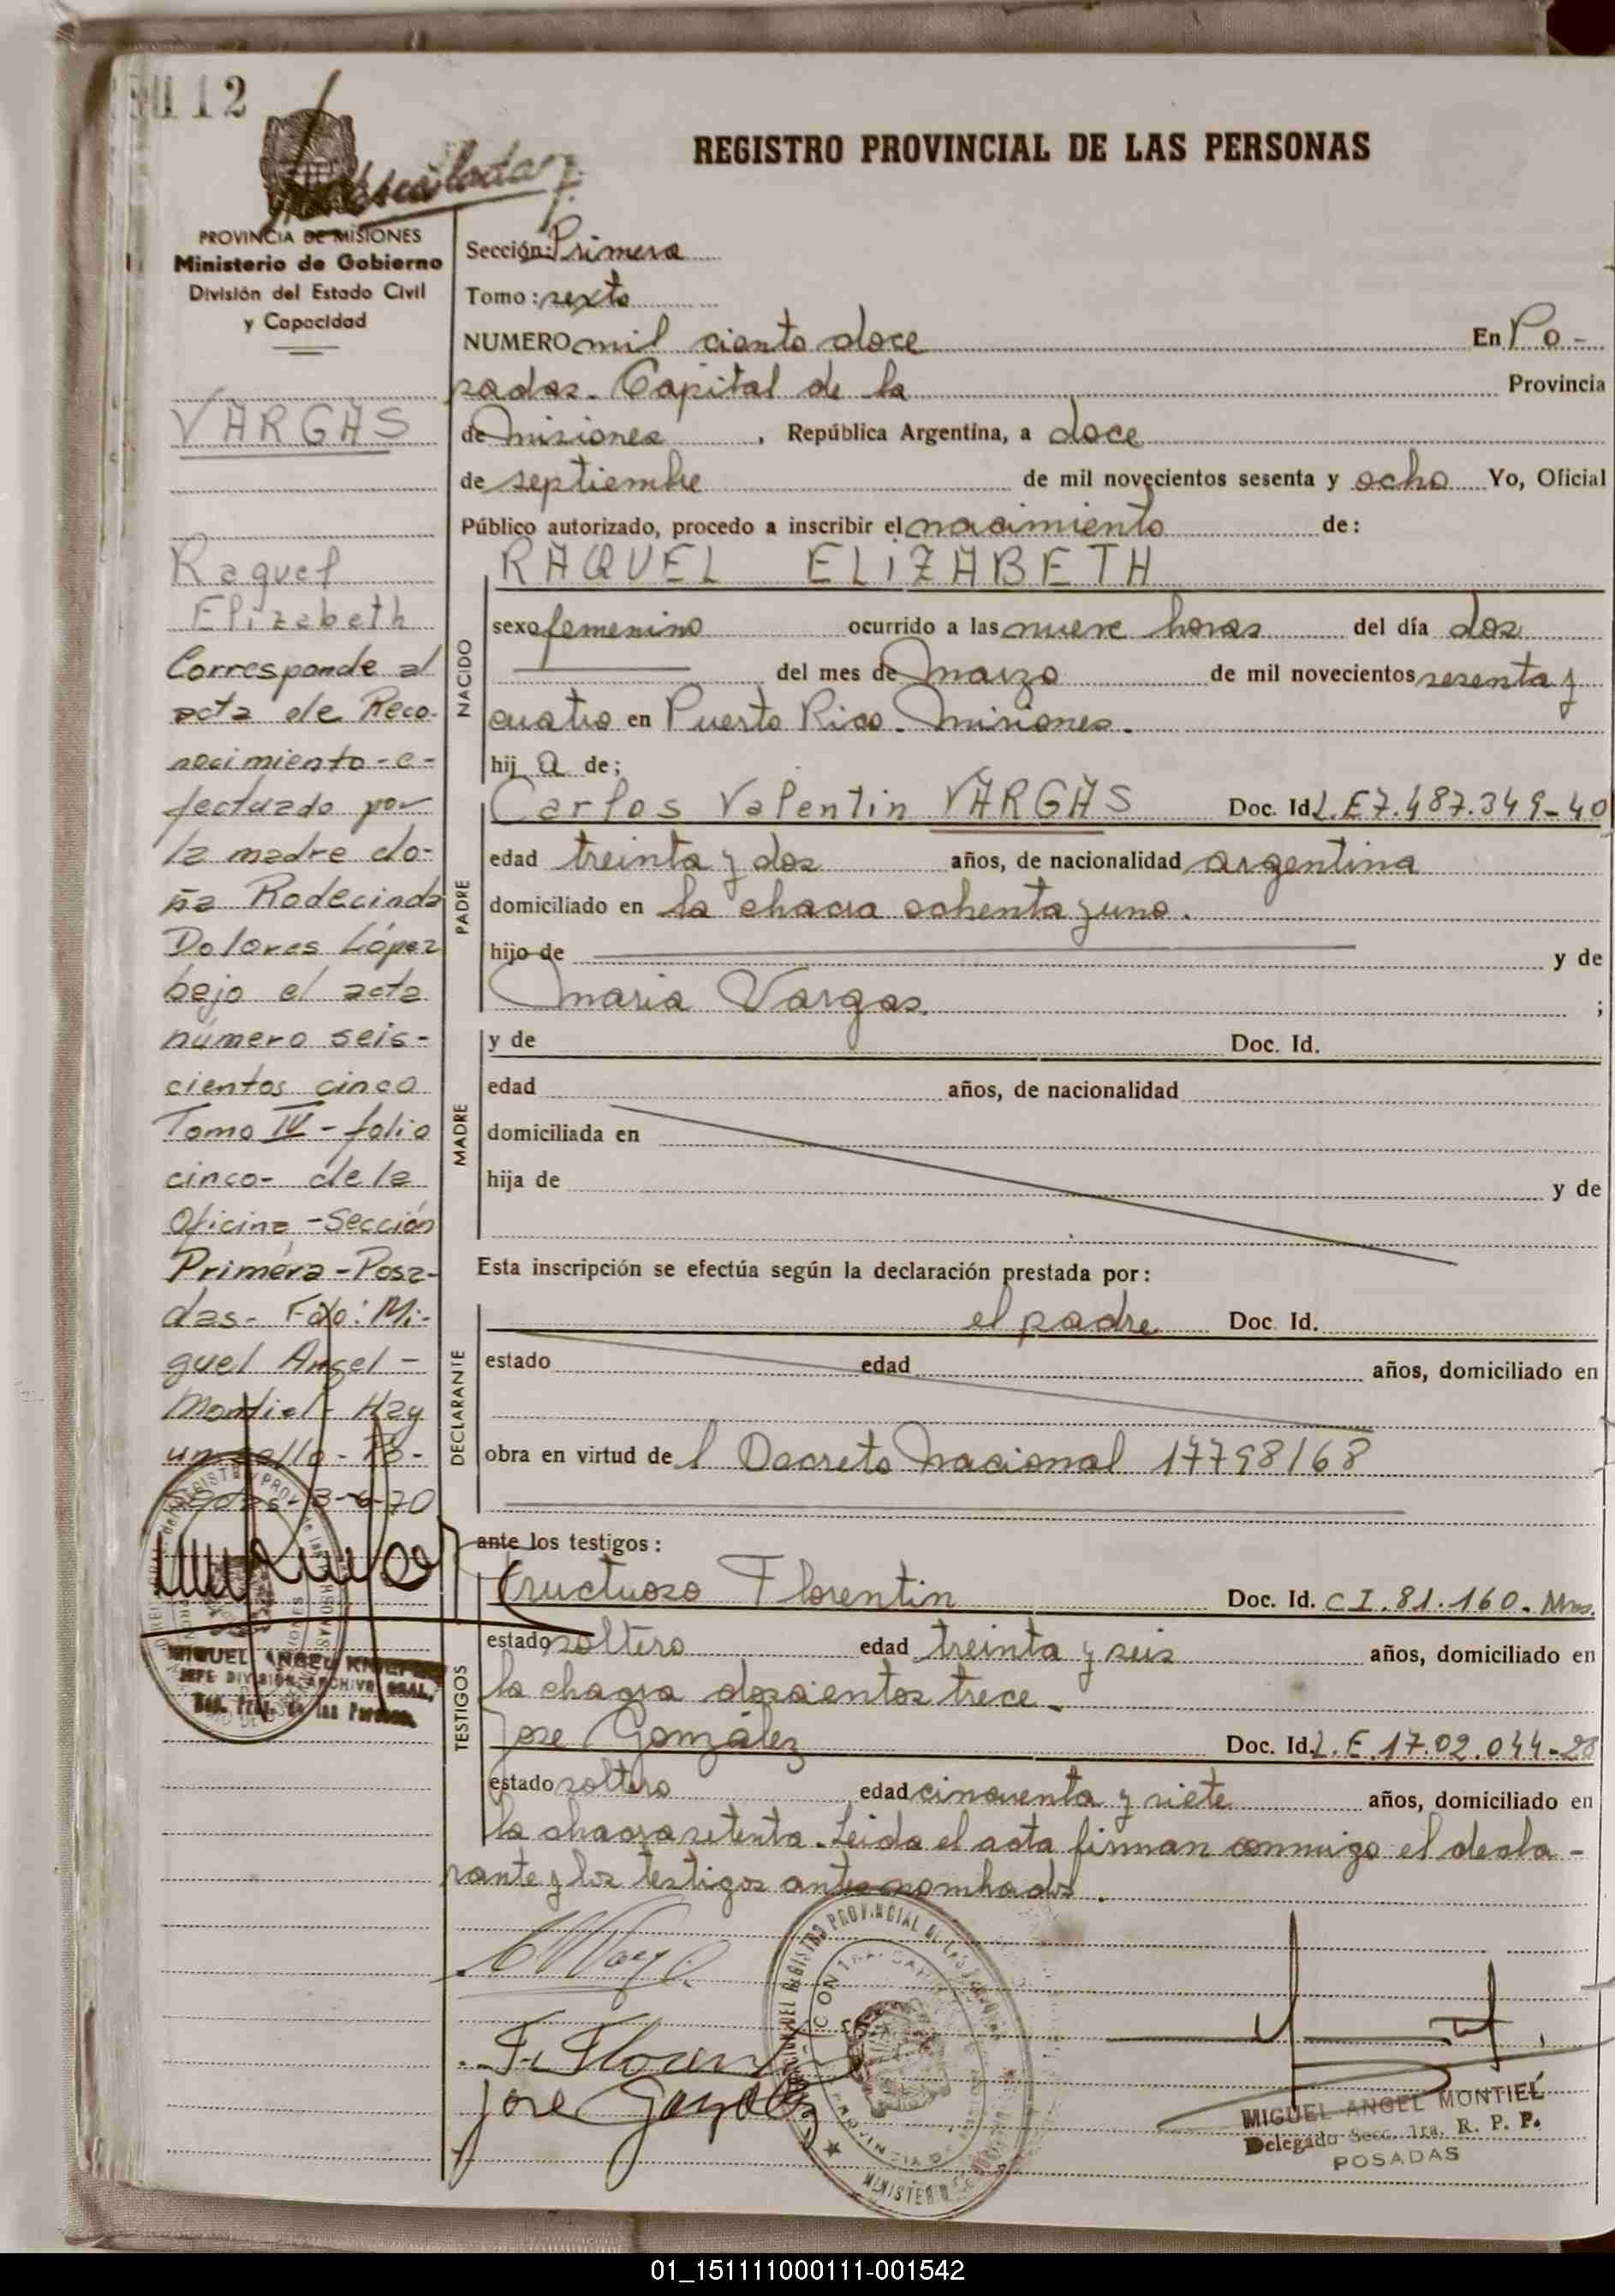 112
REGISTRO PROVINCIAL DE LAS PERSONAS
PROVINCIA DE MISIONES
Ministerio de Gobierno
División del Estado Civil
y Capacidad
VARGAS
Raquel
Elizabeth
Corresponde al
acta de Reco-
nocimiento-e-
fectuado por
la madre do-
ña Rodecinda
Dolores López
bajo el acta
número seis-
cientos cinco
Tomo IV - folio
cinco- de la
Oficina - Sección
Primera - Posa-
das- Fdo: Mi-
guel Angel -
Montiel - Hay
un sello - Po-
sadas- 3-6-70
MIGUEL ANGEL
JEFE DIVISIÓN ARCHIVO GRAL.
Sección: Primera
Tomo: sexto
NUMERO mil ciento doce En Po-
sadas. Capital de la Provincia
de Misiones, República Argentina, a doce
de septiembre de mil novecientos sesenta y ocho Yo, Oficial
Público autorizado, procedo a inscribir el nacimiento de:
RAQUEL ELIZABETH
NACIDO
sexo femenino ocurrido a las nueve horas del día dos
del mes de Marzo de mil novecientos sesenta y
cuatro en Puerto Rico. Misiones.
hija de;
PADRE
Carlos Valentin VARGAS Doc. Id. L.E 7.487.349-40
edad treinta y dos años, de nacionalidad argentina
domiciliado en la chacra ochenta y uno.
hijo de y de
Maria Vargas. ;
MADRE
y de Doc. Id.
edad años, de nacionalidad
domiciliada en
hija de y de
Esta inscripción se efectúa según la declaración prestada por:
DECLARANTE
el padre Doc. Id.
estado edad años, domiciliado en
obra en virtud del Decreto Nacional 17798/68
ante los testigos:
TESTIGOS
Fructuoso Florentin Doc. Id. C I. 81.160. Mns.
estado soltero edad treinta y seis años, domiciliado en
la chacra doscientos trece.
Jose González Doc. Id. L.E. 17.02.044-28
estado soltero edad cincuenta y siete años, domiciliado en
la chacra setenta. Leida el acta firman conmigo el decla-
rante y los testigos antes nombrados.
F. Florentin
Jose Gonzalez
MIGUEL ANGEL MONTIEL
Delegado Secc. 1ra. R. P. P.
POSADAS
01_151111000111-001542